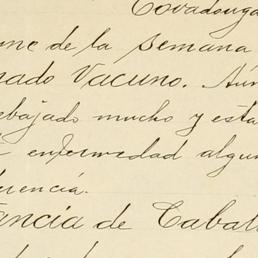 Covadonga
me de la semana
nado Vacuno. Aún
ebajado mucho y esta
enfermedad algun
erencia.
tancia de Caball